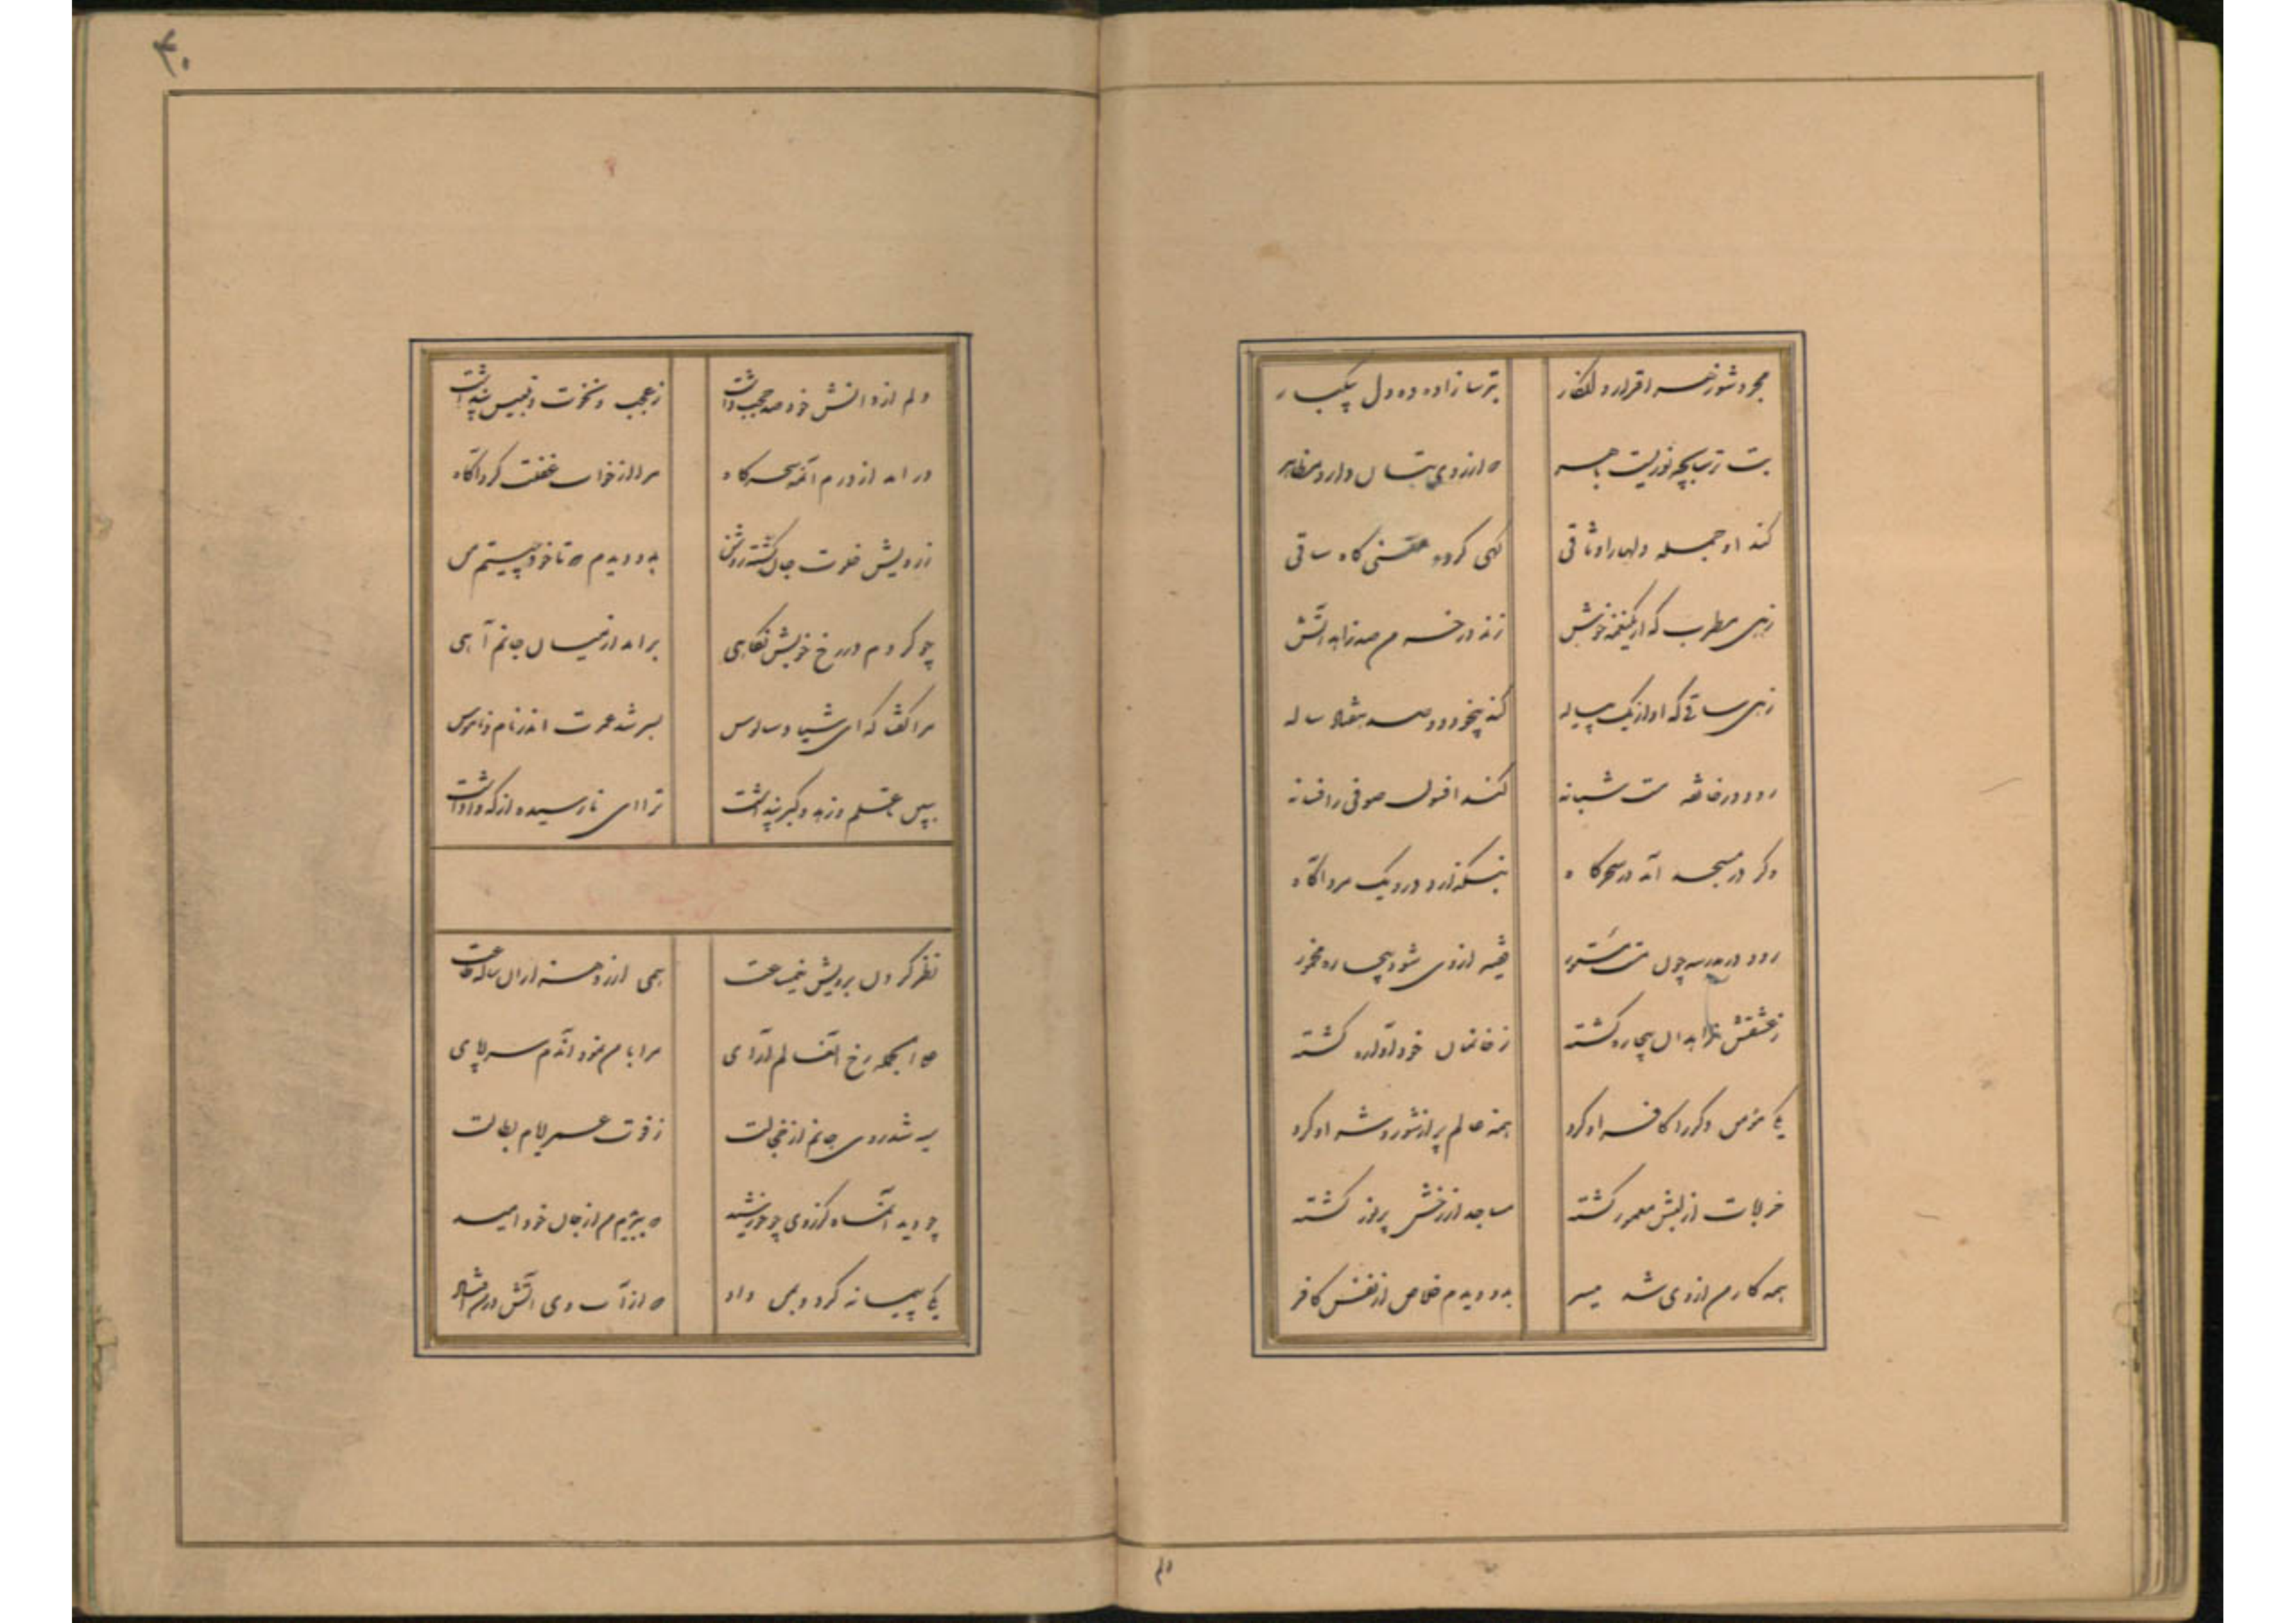 ۴۰
مجرد شو ز هر اقرار و انکار بترسا زاده ده دل بیکبار
بت ترسابچه نوریست باهر که از روی بتان دارد مظاهر
کند او جمله دلها را وثاقی گهی گردد مغنی گاه ساقی
زهی مطرب که از یک نغمه خوش زند در خرمن صد زاهد آتش
زهی ساقی که او از یک پیاله کند بیخود دو صد هفتاد ساله
رود در خانقه مست شبانه کند افسون صوفی را فسانه
وگر در مسجد آید در سحرگاه بنگذارد درو یک مرد آگاه
رود در مدرسه چون مست مستور فقیه از وی شود بیچاره مخمور
ز عشقش زاهدان بیچاره گشته ز خانمان خود آواره گشته
یکی مؤمن دگر را کافر او کرد همه عالم پر از شور و شر او کرد
خرابات از لبش معمور گشته مساجد از رخش پر نور گشته
همه کار من از وی شد میسر بدو دیدم خلاص از نفس کافر
دلم از دانش خود صد حجب داشت ز عجب و نخوت و تلبیس و پنداشت
درآمد از درم آن مه سحرگاه مرا از خواب غفلت کرد آگاه
ز رویش خلوت جان گشت روشن بدو دیدم که تا خود چیستم من
چو کردم در رخ خوبش نگاهی برآمد از میان جانم آهی
مرا گفتا که ای شیاد سالوس بسر شد عمرت اندر نام و ناموس
ببین تا علم و زهد و کبر و پنداشت ترا ای نارسیده از که واداشت
نظر کردن برویش نیم ساعت همی ارزد هزاران ساله طاعت
علی الجمله رخ آن عالم آرای مرا با من نمود آندم سراپای
سیه شد روی جانم از خجالت ز فوت عمر و ایام بطالت
چو دید آن ماه کز روی چو خورشید که ببریدم من از جان خود امید
یکی پیمانه پر کرد و بمن داد که از آب وی آتش در من افتاد